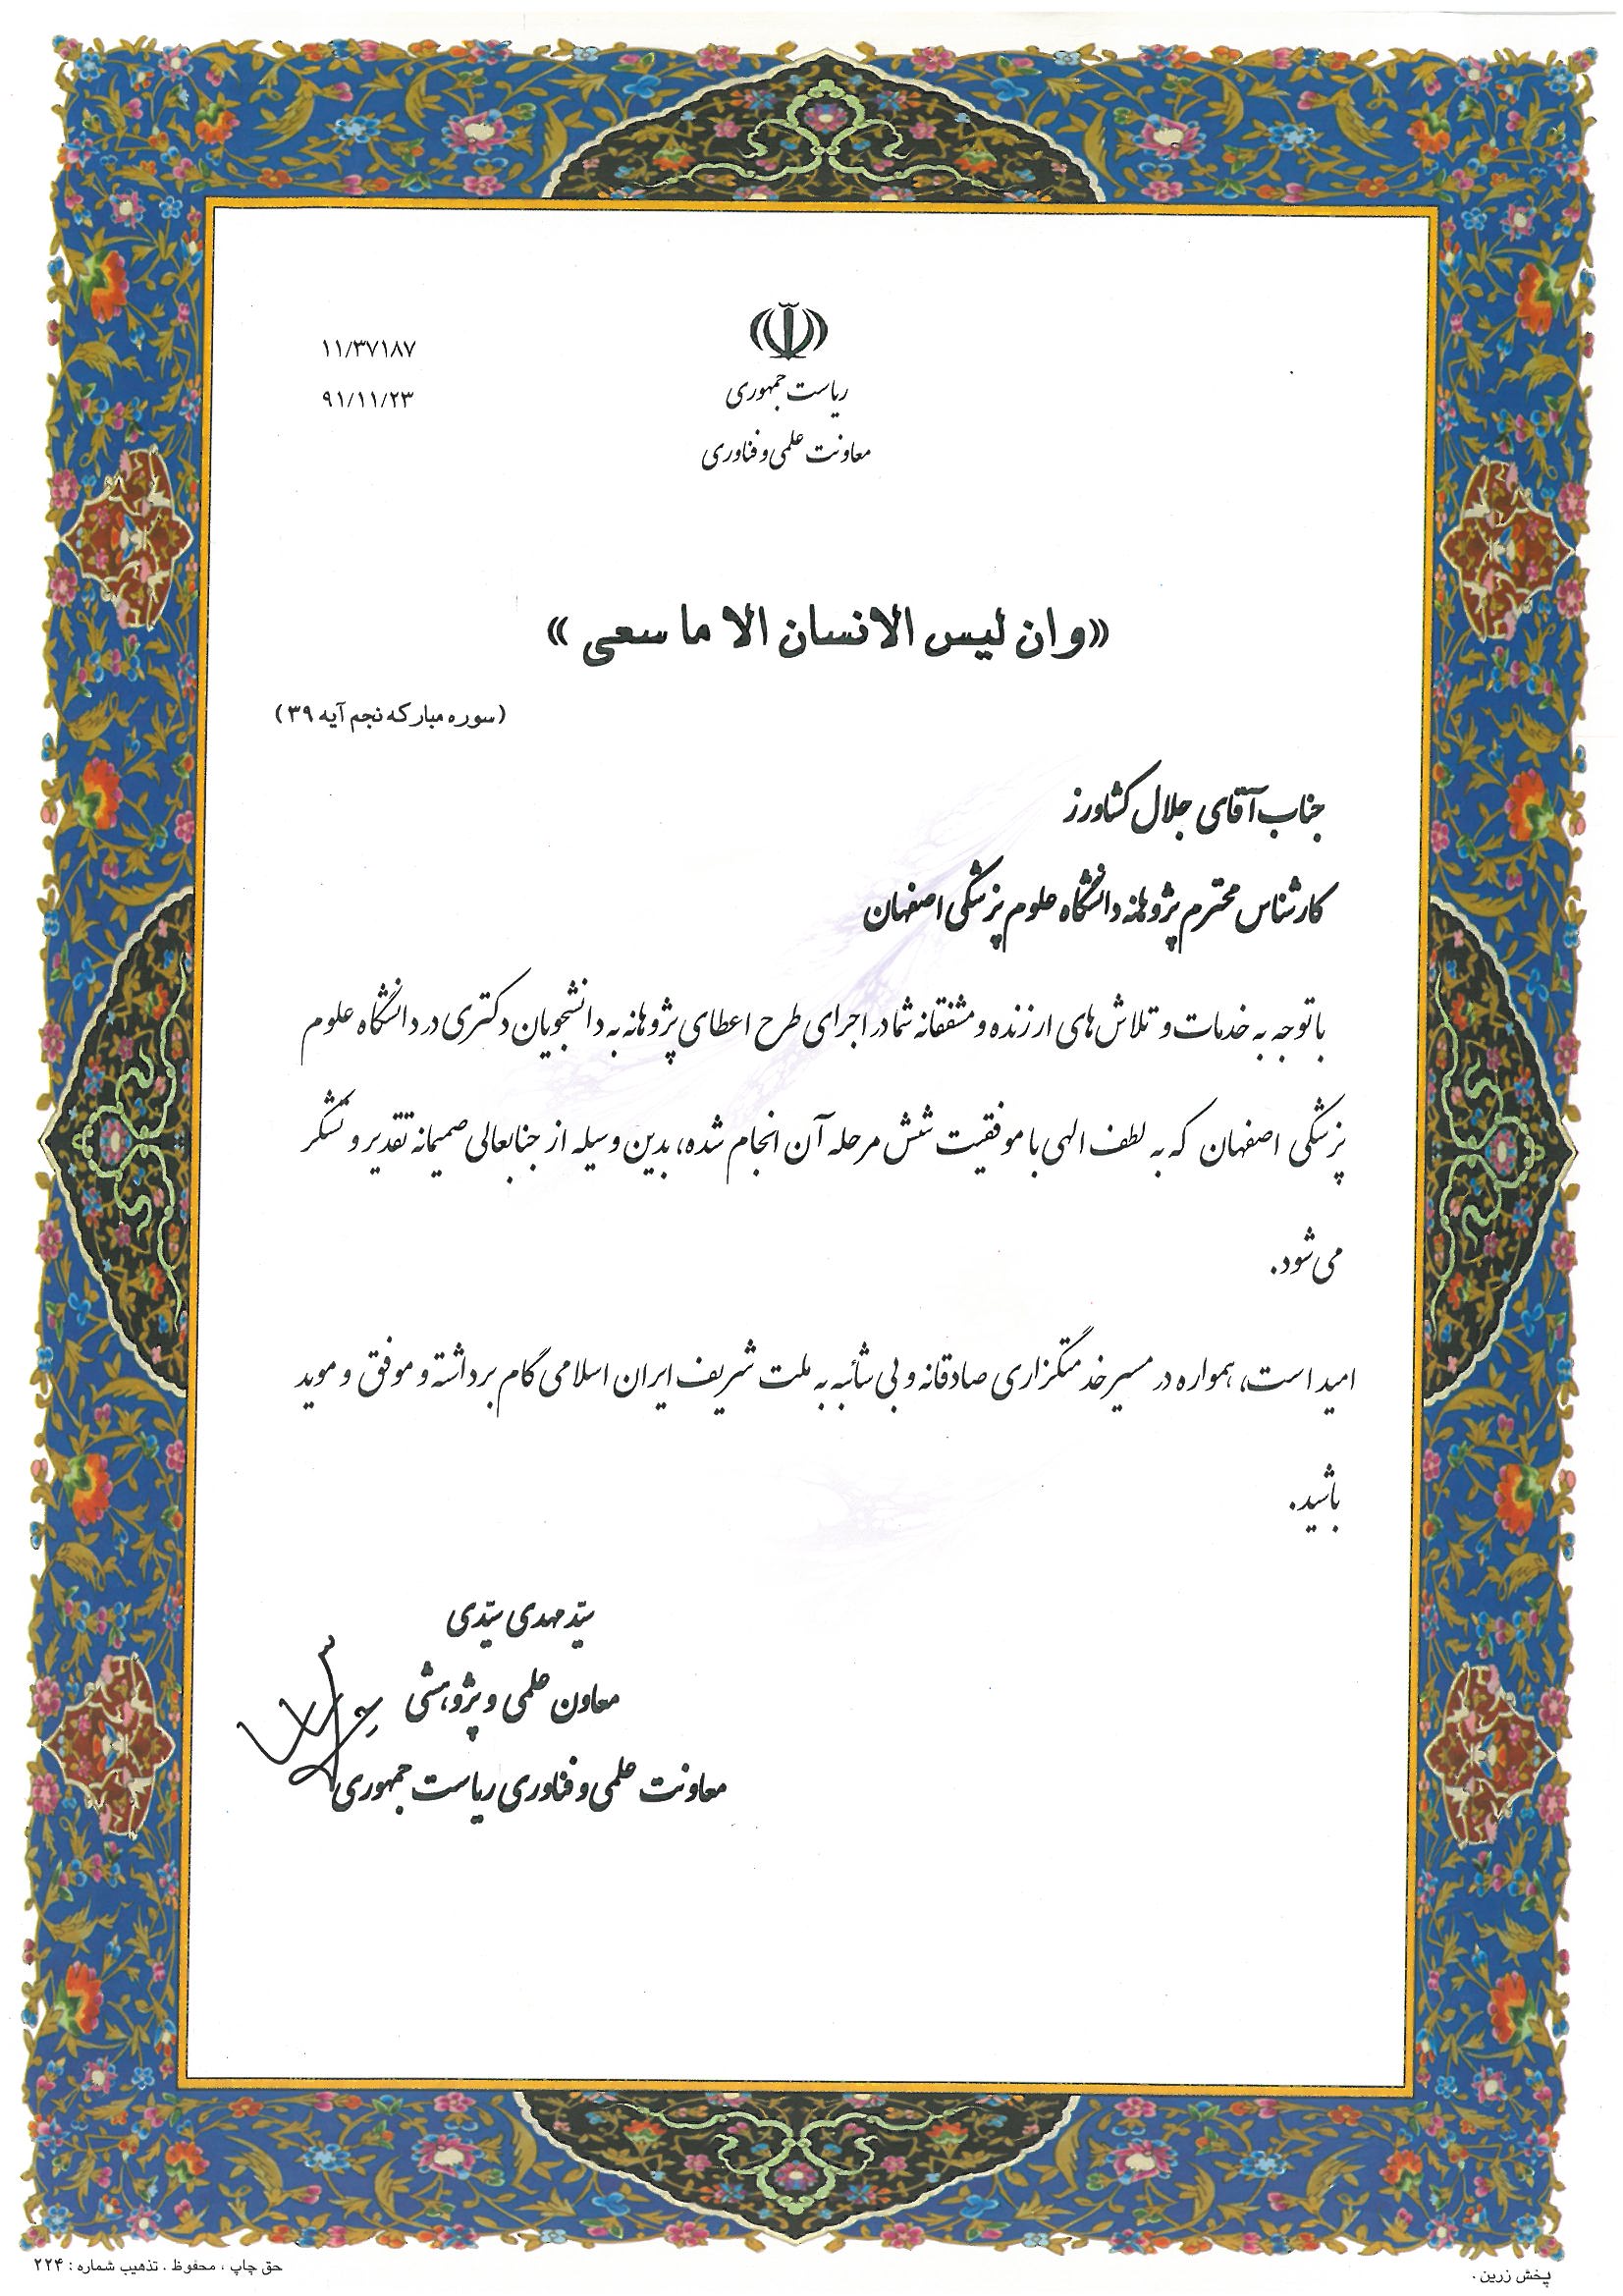 ریاست جمهوری
معاونت علمی و فناوری
۱۱/۳۷۱۸۷
۹۱/۱۱/۲۳
«وان لیس الانسان الا ما سعی»
(سوره مبارکه نجم آیه ۳۹)
جناب آقای جلال کشاورز
کارشناس محترم پژوهانه دانشگاه علوم پزشکی اصفهان
با توجه به خدمات و تلاش‌های ارزنده و مشفقانه شما در اجرای طرح اعطای پژوهانه به دانشجویان دکتری در دانشگاه علوم
پزشکی اصفهان که به لطف الهی با موفقیت شش مرحله آن انجام شده، بدین وسیله از جنابعالی صمیمانه تقدیر و تشکر
می‌شود.
امید است، همواره در مسیر خدمتگزاری صادقانه و بی شائبه به ملت شریف ایران اسلامی گام برداشته و موفق و موید
باشید.
سیّد مهدی سیّدی
معاون علمی و پژوهشی
معاونت علمی و فناوری ریاست جمهوری
پخش زرین .
حق چاپ ، محفوظ . تذهیب شماره : ۲۲۴